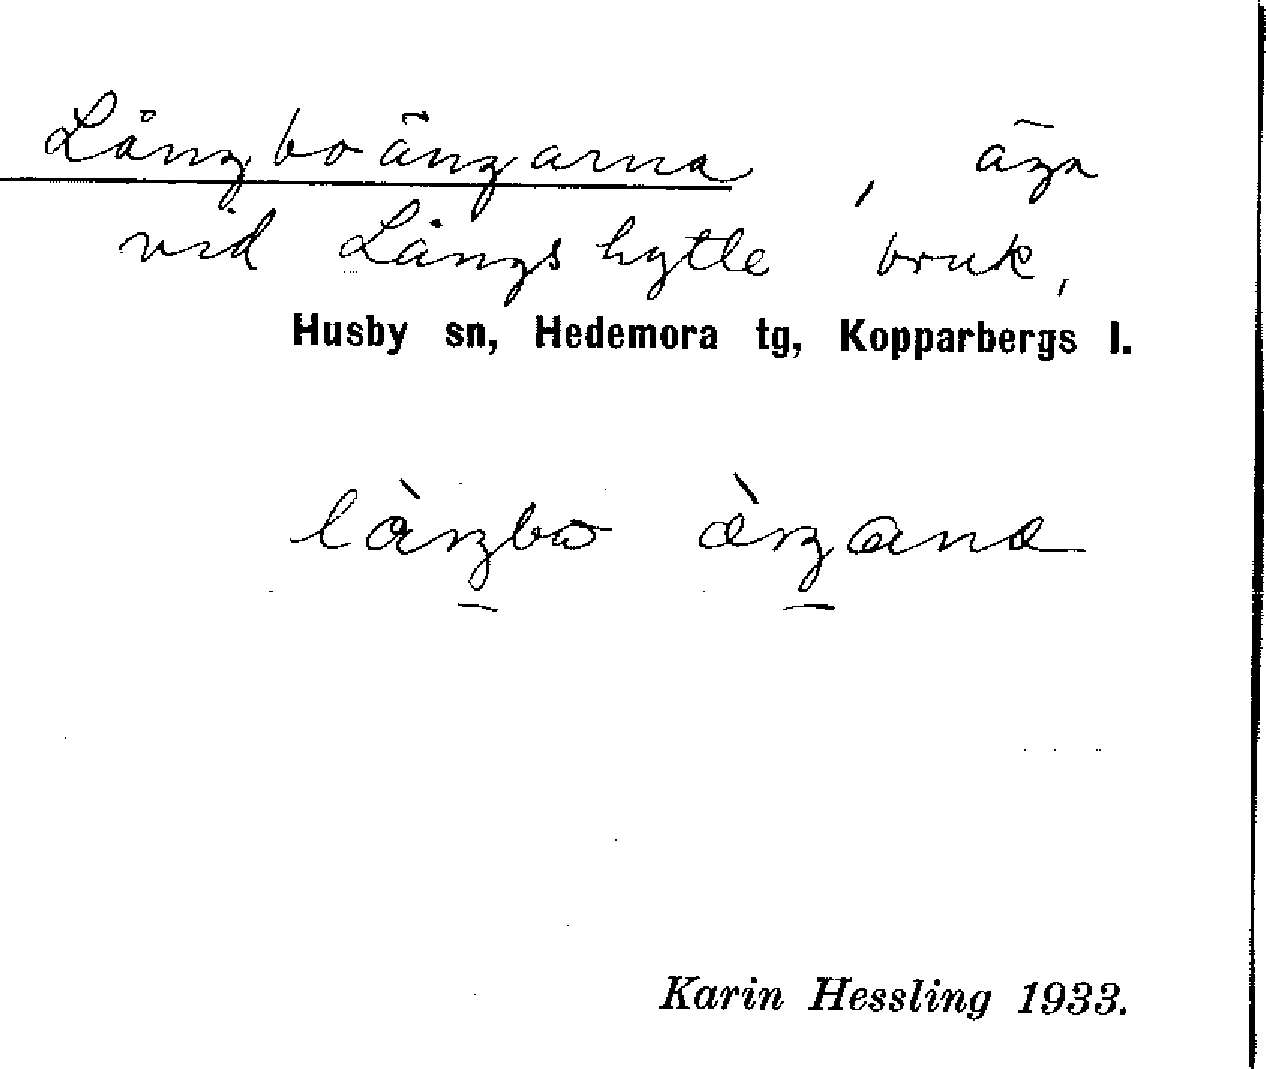 Långboängarna, äga
vid Långshytte bruk,
Husby sn, Hedemora tg, Kopparbergs l.
Karin Hessling 1933.